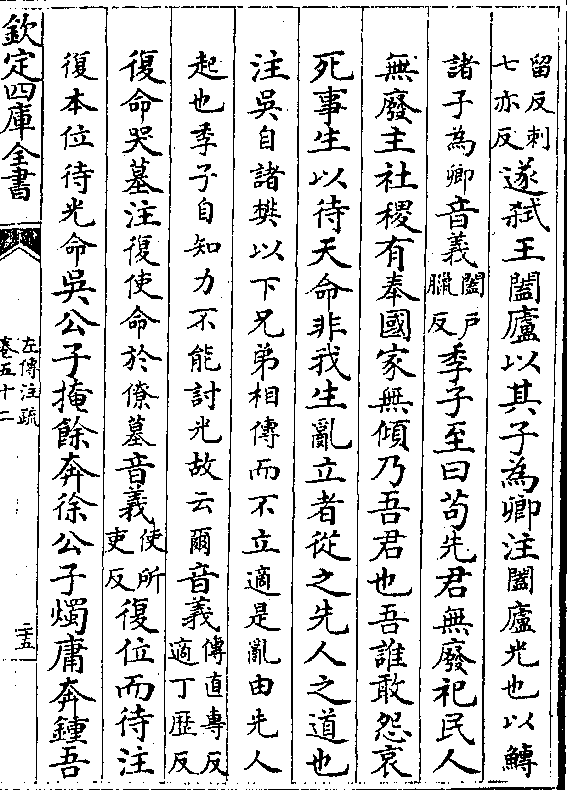 留反刺
七亦反
遂弑王闔廬以其子為卿注闔廬光也以鱄
諸子為卿音義
闔户
臘反
季子至曰茍先君無廢祀民人
無廢主社稷有奉國家無傾乃吾君也吾誰敢怨哀
死事生以待天命非我生亂立者從之先人之道也
注吳自諸樊以下兄弟相傳而不立適是亂由先人
起也季子自知力不能討光故云爾音義
傳直專反
適丁歷反
復命哭墓注復使命於僚墓音義
使所
吏反
復位而待注
復本位待光命吳公子掩餘奔徐公子燭庸奔鍾吾
欽定四庫全書
左傳注疏
卷五十二
二十五